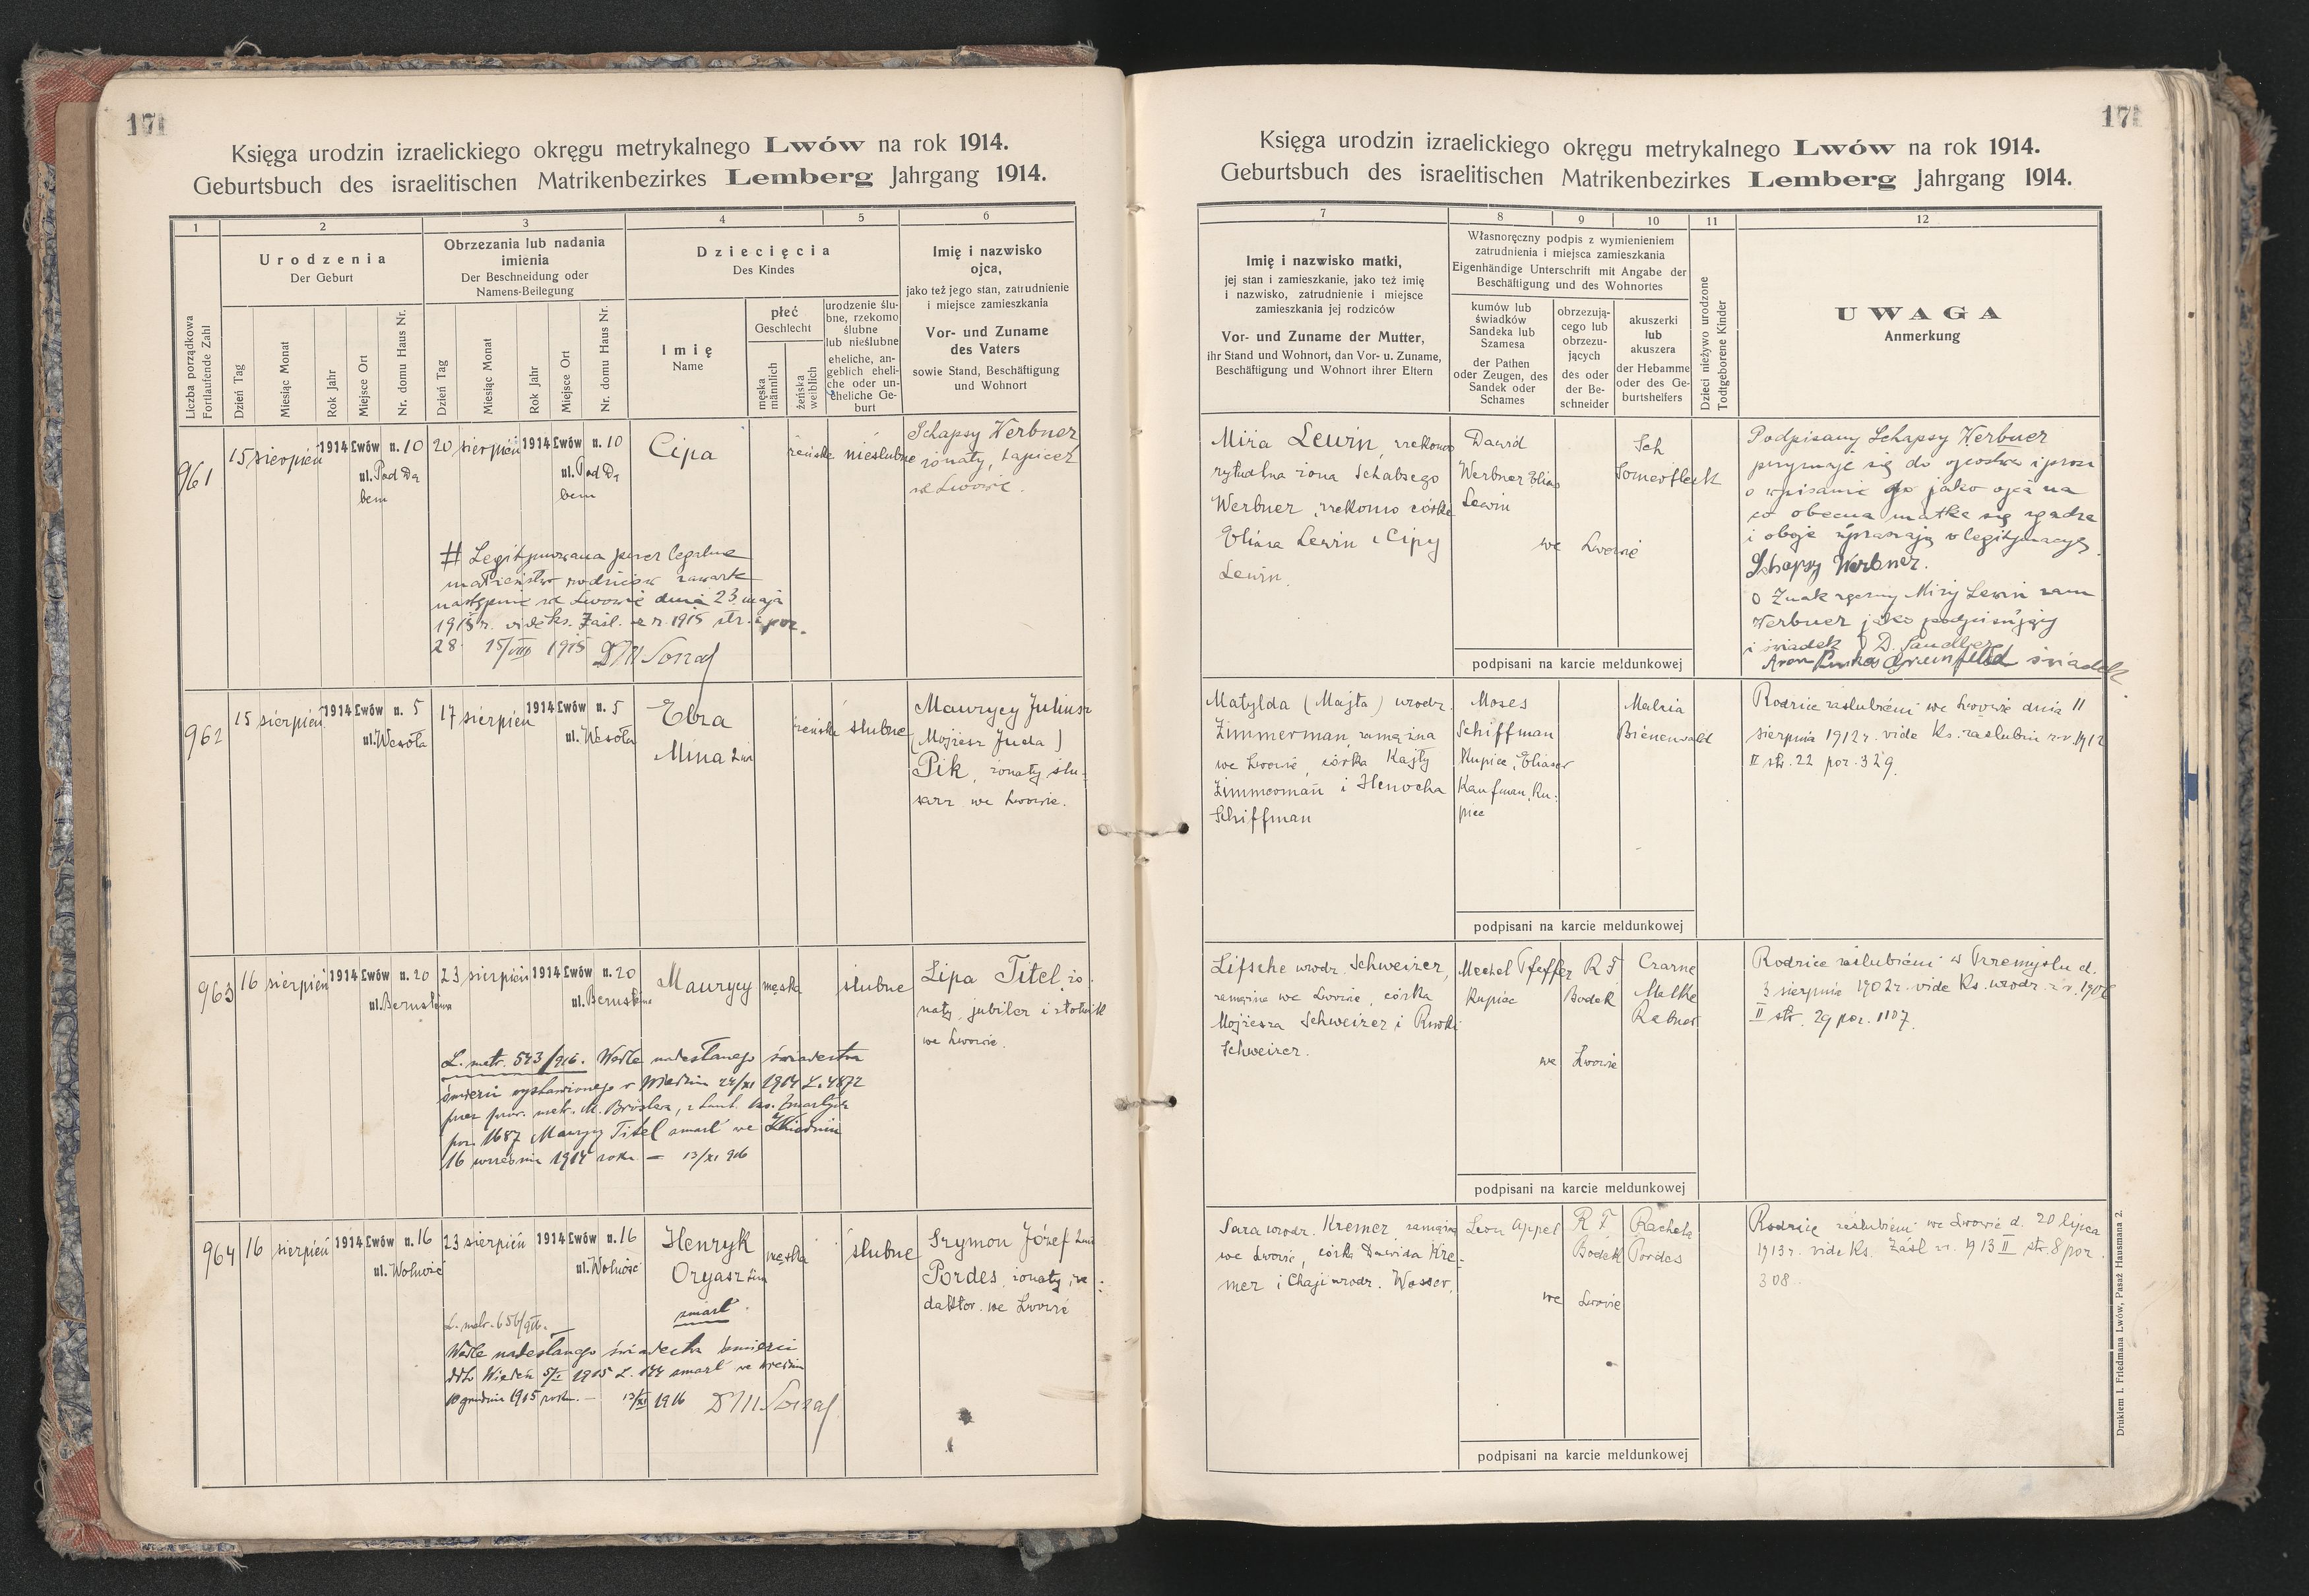 171
Księga urodzin izraelickiego okręgu metrykalnego Lwów na rok 1914.
Geburtsbuch des israelitischen Matrikenbezirkes Lemberg Jahrgang 1914.
1 2 3 4 5 6
Liczba porządkowa
Fortlaufende Zahl
Urodzenia
Der Geburt
Dzień Tag
Miesiąc Monat
Rok Jahr
Miejsce Ort
Nr. domu Haus Nr.
Obrzezania lub nadania
imienia
Der Beschneidung oder
Namens-Beilegung
Dzień Tag
Miesiąc Monat
Rok Jahr
Miejsce Ort
Nr. domu Haus Nr.
Dziecięcia
Des Kindes
Imię
Name
płeć
Geschlecht
męska
männlich
żeńska
weiblich
urodzenie ślu-
bne, rzekomo
ślubne
lub nieślubne
eheliche, an-
geblich eheli-
che oder un-
eheliche Ge-
burt
Imię i nazwisko
ojca,
jako też jego stan, zatrudnienie
i miejsce zamieszkania
Vor- und Zuname
des Vaters
sowie Stand, Beschäftigung
und Wohnort
961 15 sierpień 1914 Lwów n. 10 20 sierpień 1914 Lwów n. 10 Cipa żeńska nieślubne
ul. Pod Dę
bem
ul. Pod Dę
bem
Schapsy Werbner
żonaty, tapicer
we Lwowie.
# Legitymowana przez legalne
małżeństwo rodziców zawarte
następnie we Lwowie dnia 23 maja
1915 r. vide ks. zaśl. z r. 1915 str. por.
28. 15/VIII 1915
962 15 sierpień 1914 Lwów n. 5 17 sierpień 1914 Lwów n. 5 Elza żeńska ślubne
ul. Wesoła
ul. Wesoła
Mina
Maurycy Juliusz
(Mojżesz Juda)
Pik, żonaty, ślu-
sarz we Lwowie.
963 16 sierpień 1914 Lwów n. 20 23 sierpień 1914 Lwów n. 20 Maurycy męska ślubne
Lipa Titel żo-
naty, jubiler i złotnik
we Lwowie.
L. metr. 543/916. Wedle nadesłanego świadectwa
śmierci wystawionego w Wiedniu 24/XI 1914 L. 4872
por. 1687 Maurycy Titel zmarł we Wiedniu
16 września 1914 roku — 13/XI 916
964 16 sierpień 1914 Lwów n. 16 23 sierpień 1914 Lwów n. 16 Henryk męska ślubne
ul. Wolność
ul. Wolność
zmarł.
Szymon Józef
Pordes, żonaty, re-
daktor we Lwowie
Wedle nadesłanego świadectwa śmierci
zmarł we Wiedniu
10 grudnia 1915 roku. — 13/XI 1916
171
Księga urodzin izraelickiego okręgu metrykalnego Lwów na rok 1914.
Geburtsbuch des israelitischen Matrikenbezirkes Lemberg Jahrgang 1914.
7 8 9 10 11 12
Imię i nazwisko matki,
jej stan i zamieszkanie, jako też imię
i nazwisko, zatrudnienie i miejsce
zamieszkania jej rodziców
Vor- und Zuname der Mutter,
ihr Stand und Wohnort, dan Vor- u. Zuname,
Beschäftigung und Wohnort ihrer Eltern
Własnoręczny podpis z wymienieniem
zatrudnienia i miejsca zamieszkania
Eigenhändige Unterschrift mit Angabe der
Beschäftigung und des Wohnortes
kumów lub
świadków
Sandeka lub
Szamesa
der Pathen
oder Zeugen, des
Sandek oder
Schames
obrzezują-
cego lub
obrzezu-
jących
des oder
der Be-
schneider
akuszerki
lub
akuszera
der Hebamme
oder des Ge-
burtshelfers
Dzieci nieżywo urodzone
Todtgeborene Kinder
UWAGA
Anmerkung
Mina Lewin, rzekomo
rytualna żona Schabsego
Werbner, rzekomo córka
Eliasa Lewin i Cipy
Lewin.
Dawid
Werbner Elias
Lewin
Sch
Somerfleck
we Lwowie
podpisani na karcie meldunkowej
Podpisany Schapsy Werbner
przyznaje się do ojcostwa i prosi
o wpisanie go jako ojca na
co obecna matka się zgadza
i oboje upraszają o legitymację.
Schapsy Werbner.
o Znak ręczny Miny Lewin zam
Werbner jako podpisujący
i świadek D. Sandler
Aron Pinkas Grünfeld świadek.
Matylda (Majta) urodz.
Zimmerman, zamężna
we Lwowie, córka Kajty
Zimmerman i Henocha
Schiffman
Moses
Schiffman
Kupiec, Eliaser
Kaufman, Ku-
piec
Malcia
Bienenwald
podpisani na karcie meldunkowej
Rodzice zaślubieni we Lwowie dnia 11
sierpnia 1912 r. vide Ks. zaślubin z r. 1912
II str. 22 por. 329.
Lifsche urodz. Schweizer,
zamężna we Lwowie, córka
Mojżesza Schweizer i Rywki
Schweizer.
Mechel Pfeffer
Kupiec
R F
Bodek
Czarne
Malke
Rebner
we Lwowie
podpisani na karcie meldunkowej
Rodzice zaślubieni w Przemyślu d.
3 sierpnia 1902 r. vide Ks. urodz. z r. 1906
II str. 29 por. 1107.
Sara urodz. Kremer, zamężna
we Lwowie, córka Dawida Kre-
mer i Chaji urodz. Wasser.
Leon Appel
R F
Bodek
Rachela
Pordes
we Lwowie
podpisani na karcie meldunkowej
Rodzice zaślubieni we Lwowie d. 20 lipca
1913 r. vide Ks. zaśl. z r. 1913 II str. 8 por.
308
Drukiem I. Friedmana Lwów, Pasaż Hausmana 2.